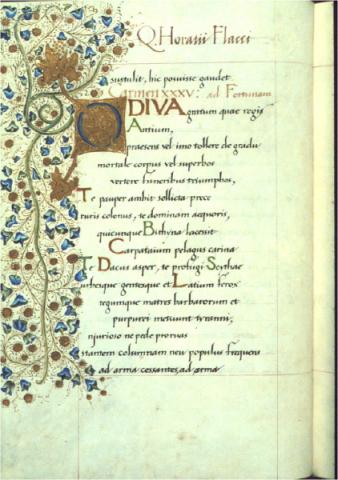 Q. Horatii Flacci
sustulit, hic posuisse gaudet
Carmen XXXV: ad Fortunam
O DIVA gratum quae regis
Antium,
praesens vel imo tollere de gradu
mortale corpus vel superbos
vertere funeribus triumphos,
Te pauper ambit sollicita prece
ruris colonus, te dominam aequoris,
quicumque Bithyna lacessit
Carpathium pelagus carina
Te Dacus asper, te profugi Scythae
urbesque gentesque et Latium ferox
regumque matres barbarorum et
purpurei metuunt tyranni,
iniurioso ne pede proruas
stantem columnam neu populus frequens
ad arma cessantes, ad arma